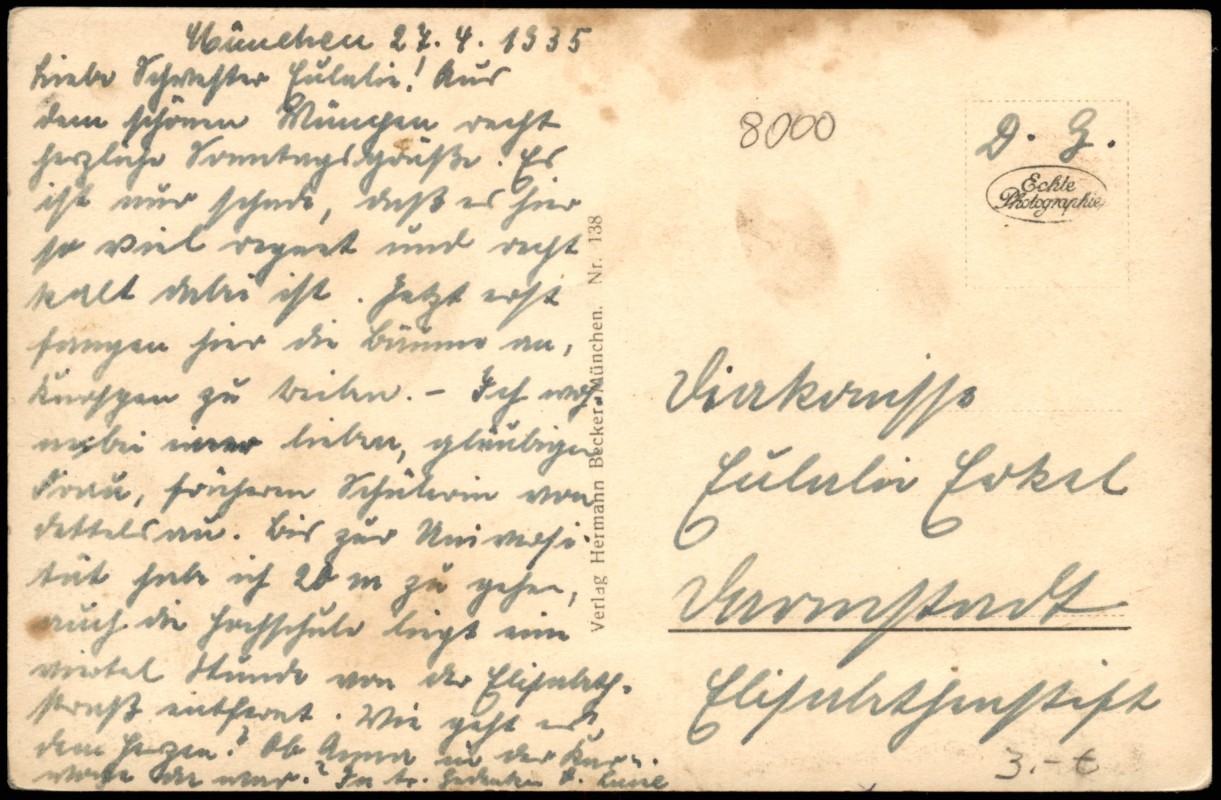 München 27.4.1935
Liebe Schwester Eulalie! Aus
dem schönen München recht
herzliche Sonntagsgrüße. Es
ist nur schade, daß es hier
so viel regnet und recht
kalt dabei ist. Jetzt erst
fangen hier die Bäume an,
zu treiben. – Ich woh-
ne bei einer lieben, gläubigen
Frau, früheren Schülerin von
Dettelsau. Bis zur Universi-
tät habe ich 20 m zu gehen,
auch die Hochschule liegt eine
viertel Stunde von der Elisabeth-
straß entfernt. Wie geht es
dem Herzen? Ob Anna in der
da war? In tr. Gedenken
Verlag Hermann Becker, München. Nr. 138
8000
D. G.
Echte
Photographie
Diakonisse
Eulalie Erkel
Darmstadt
Elisabethenstift
3.-